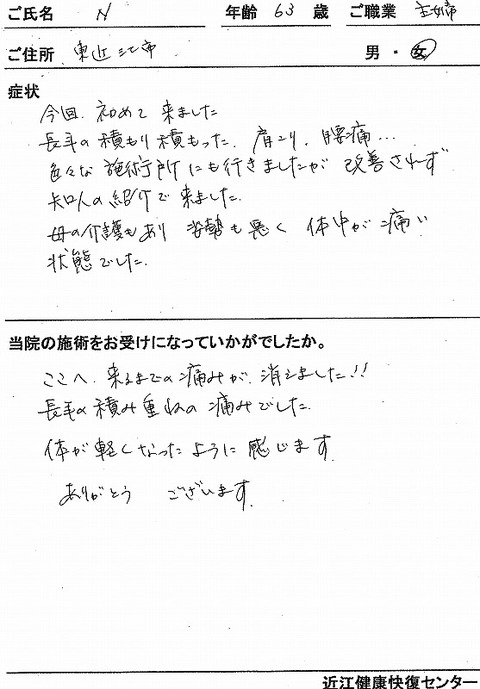 ご氏名 N 年齢 63 歳 ご職業 主婦
ご住所 東近江市 男・女
症状
今回、初めて来ました
長年の積もり積もった、肩こり、腰痛…
色々な施術所にも行きましたが改善されず
知人の紹介で来ました。
母の介護もあり姿勢も悪く体中が痛い
状態でした。
当院の施術をお受けになっていかがでしたか。
ここへ来るまでの痛みが消えました!!
長年の積み重ねの痛みでした。
体が軽くなったように感じます。
ありがとうございます。
近江健康快復センター